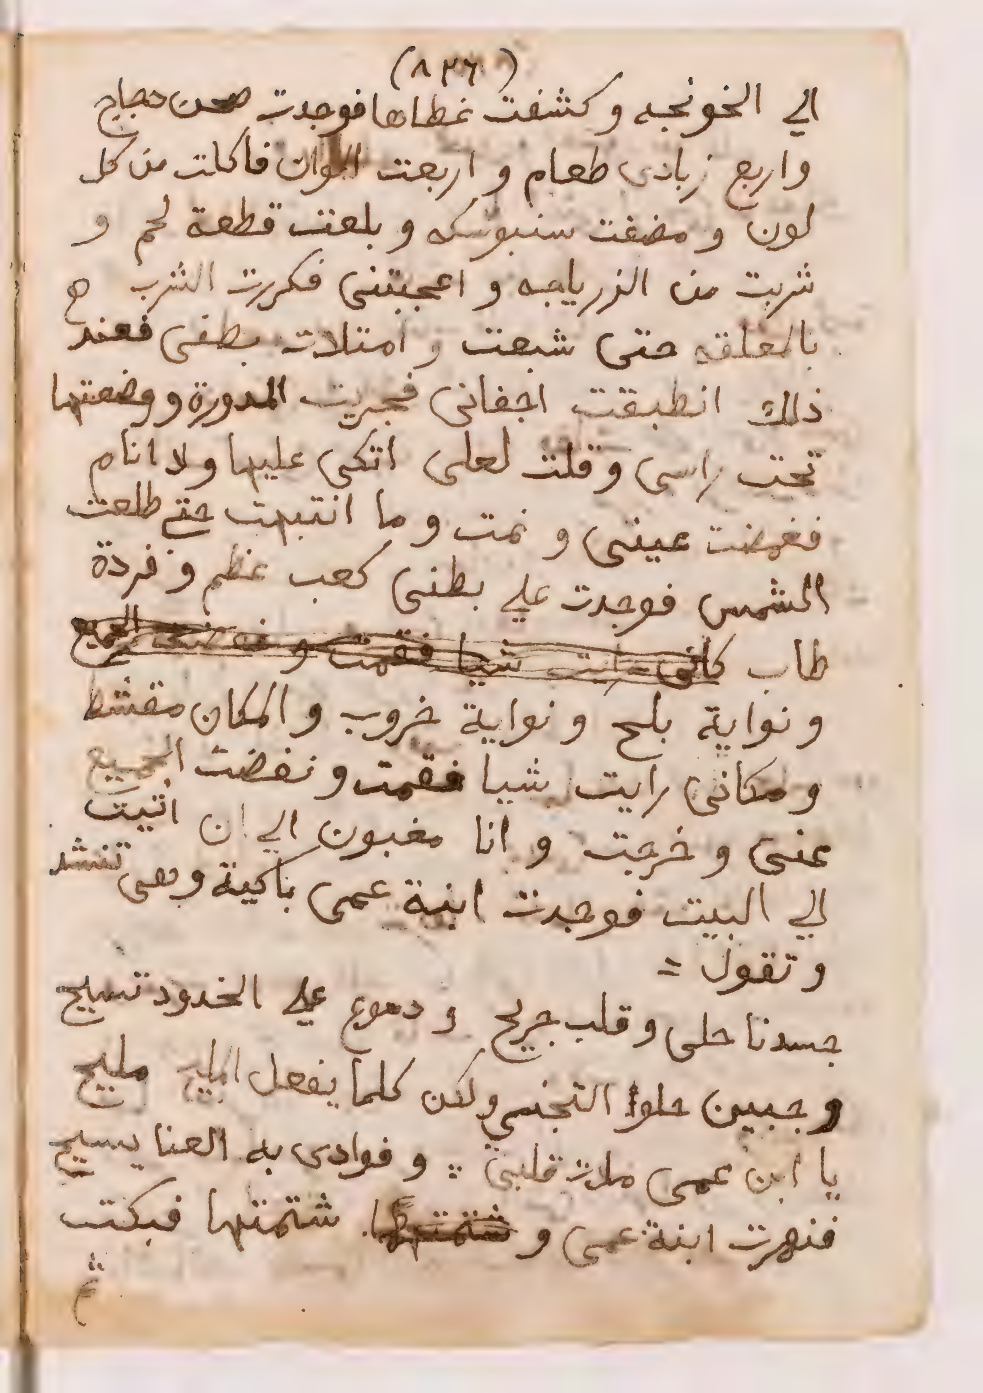 (٨٣٦)
الي الخونجه وكشفت غطاها فوجدت صحن دجاج
واربع زبادى طعام و اربعت الوان فاكلت من كل
لون و مضغت سنبوسكه و بلعت قطعة لحم و
شربت من الزرباجه و اعجبتنى فكررت الشرب
بالمعلقه حتى شبعت و امتلات بطنى فعند
ذلك انطبقت اجفانى فجريت المدورة ووضعتها
تحت راسى وقلت لعلى اتكى عليها ولا انام
فغمضت عينى و نمت و ما انتبهت حتى طلعت
الشمس فوجدت على بطنى كعب عظم و فردة
طاب كانى رايت شيا فقمت و نفضت الجميع
و نواية بلح و نواية خروب و المكان مقشط
ومكانى رايت شيا فقمت و نفضت الجميع
عنى و خرجت و انا مغبون الي ان اتيت
الي البيت فوجدت ابنة عمى باكية وهى تنشد
و تقول =
جسدنا حلى و قلب جريح و دموع على الخدود تسيح
و جبين حلوا التجنى ولكن كلما يفعل المليح مليح
يا ابن عمى ملات قلبى و فوادى به العنا يسيح
فنهرت ابنة عمى و شتمتها شتمتها فبكت